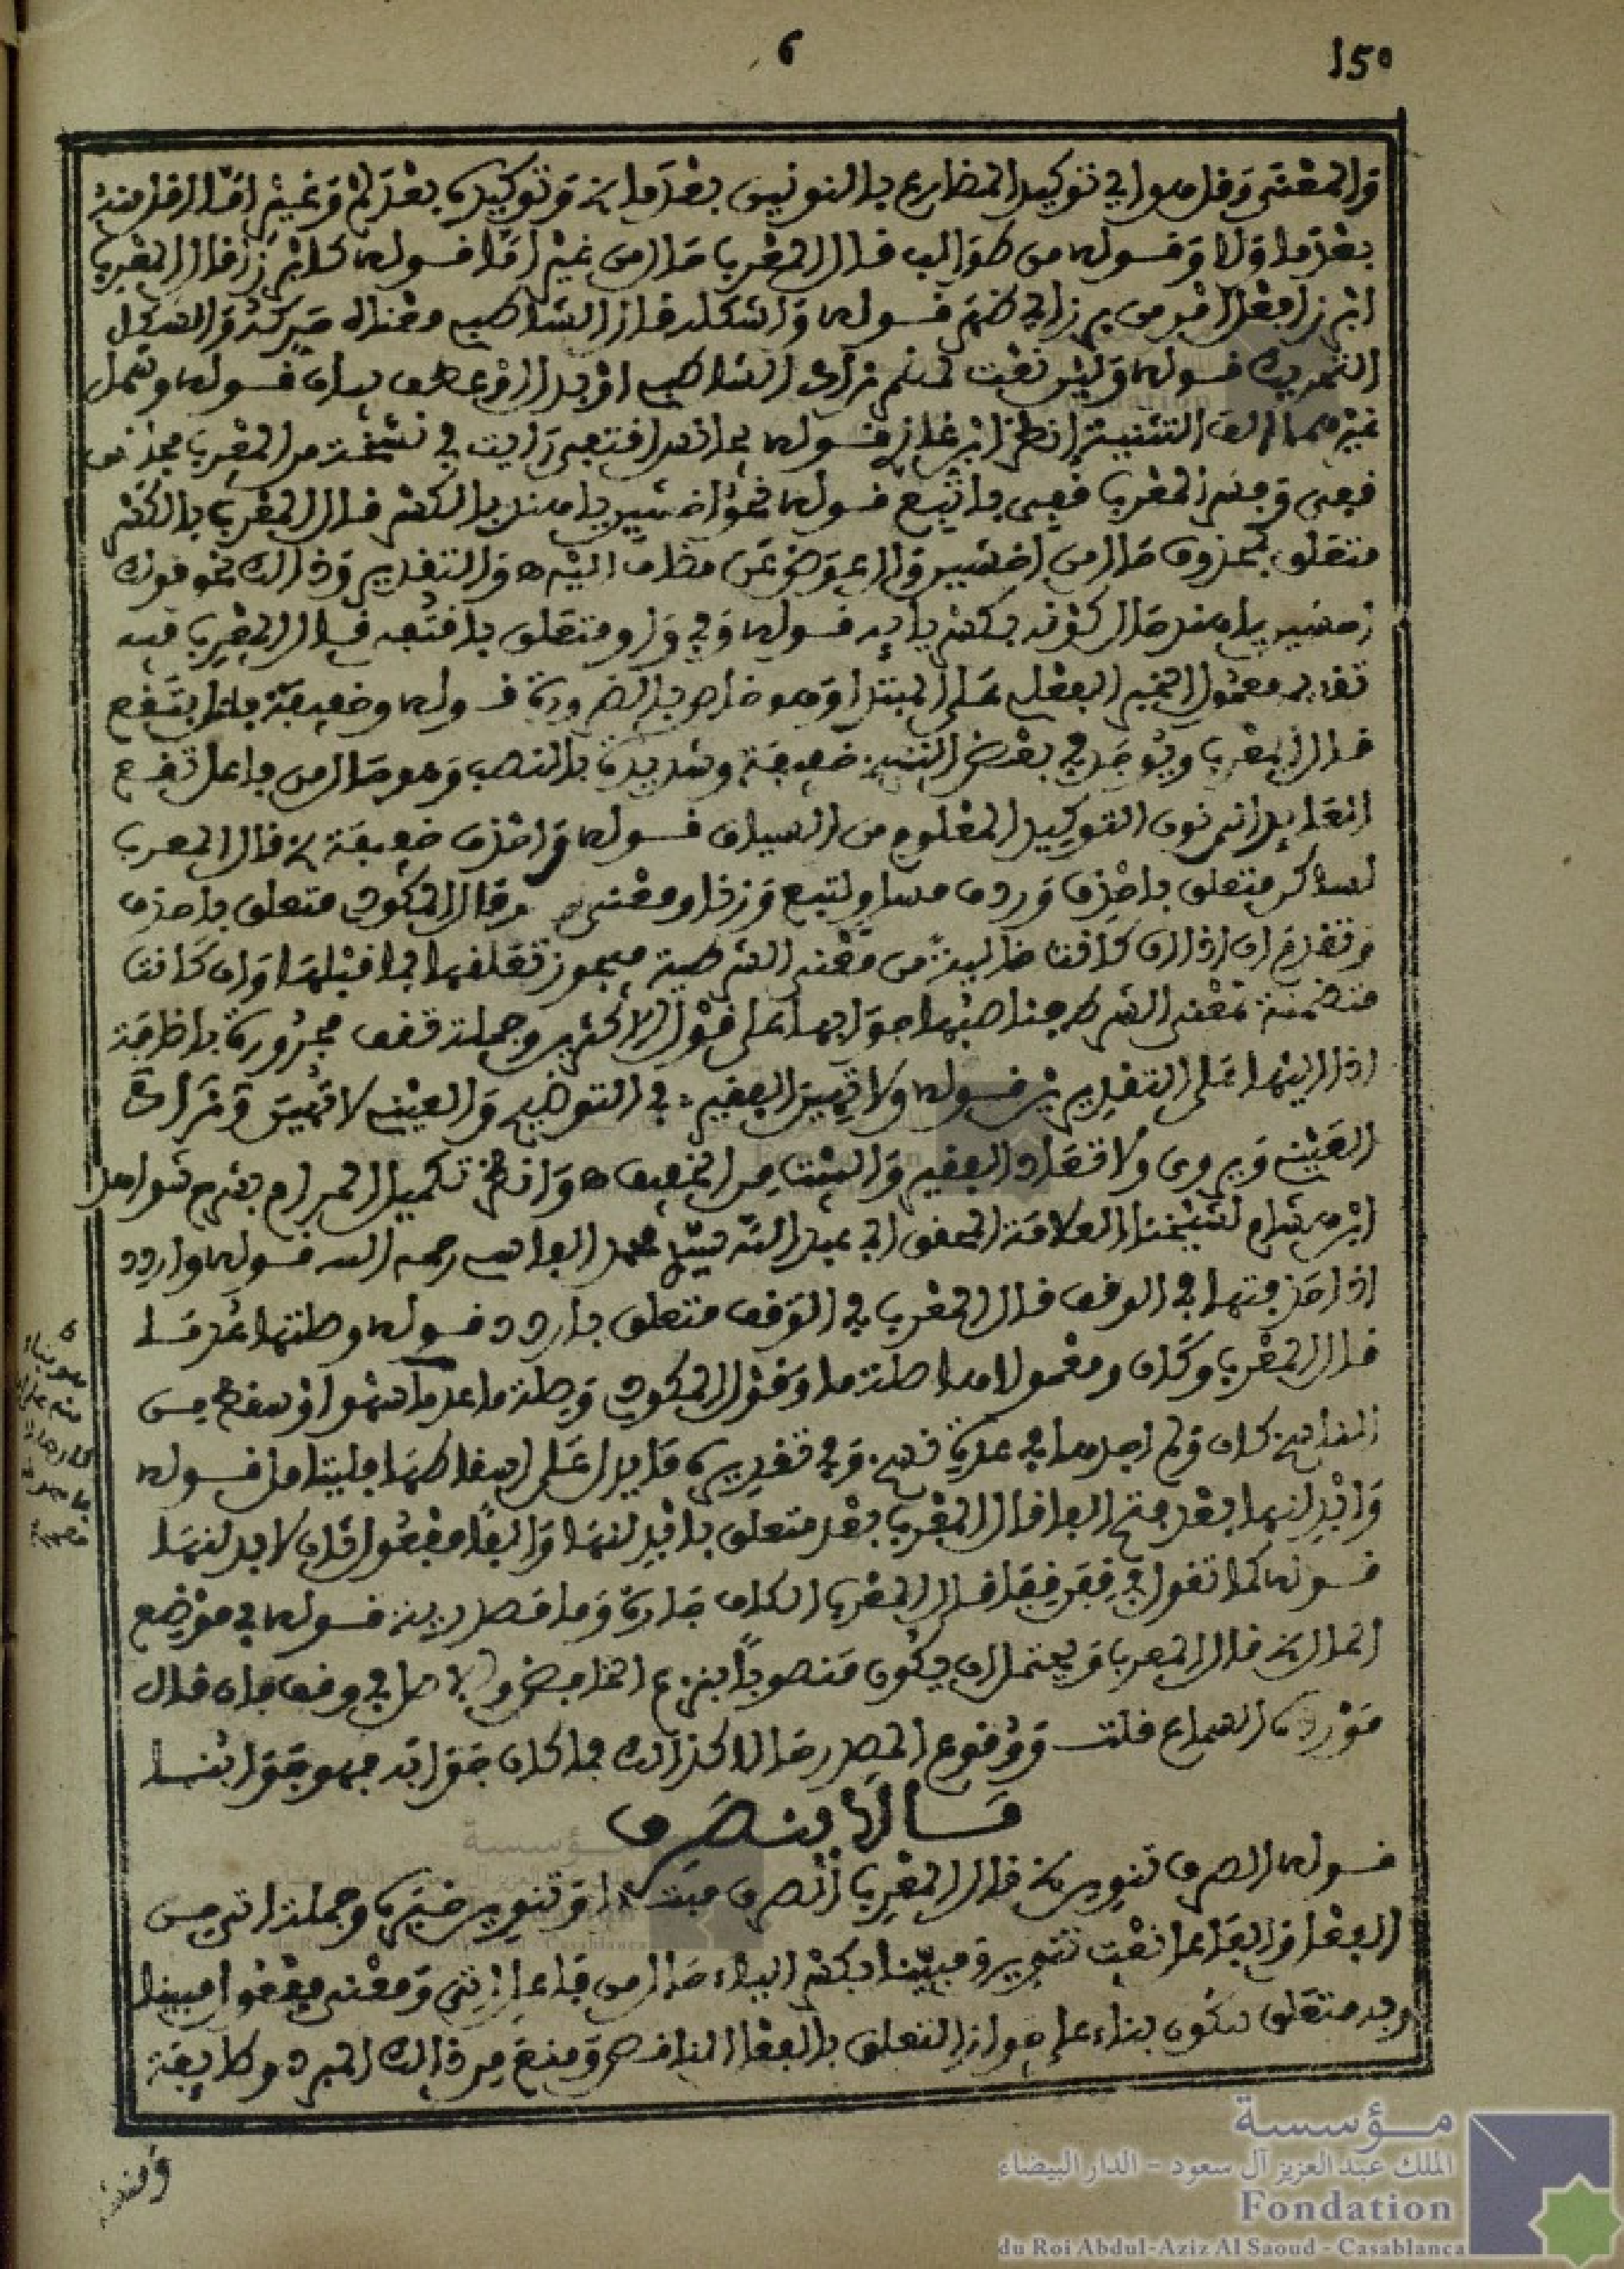 150
6
والمعنى وقل هو اي توكيد المضارع بالنونين بعد ما الخ وتوكيده بعد لم وغير اما اقل منه
بعد ما ولا وقوله من طوالب قال المعرب حال من غير اما قوله كابرزا قال المعرب
ابرزا فعل امر من برز اي ظهر قوله واشكله قال الشاطبي معناه حركه والشكل
التحريك قوله وليس نعت لمضمر زاد الشاطبي او بدل او عطف بيان قوله وشمل
غير هما الف التثنية انظر ابن غازي قوله افتحى رايت في نسخة من المعرب بحذف
المعرب قوله نحو اخشين يا هند بالكسر قال المعرب بالكسر
متعلق بمحذوف حال من اخشين عوض عن مضاف اليه ه والتقدير وذالك نحو قولك
اخشين يا هند حال كونه بكسر يائه قوله وفي واو متعلق بافتحه قال المعرب فيه
تقديم معمول الخبر الفعلي على المبتدا وهو خاص بالضرورة قوله وخفيفة
قال المعرب ويوجد في بعض النسخ خفيفة وشديدة بالنصب وهو حال من فاعل تقع
العايد الى نون التوكيد المعلوم من السياق قوله واحذف خفيفة الخ قال المعرب
لساكن متعلق باحذف وردف مساو لتبع وزنا ومعنى وقال المكودي متعلق باحذف
وتقدم ان اذا ان كانت خالية من معنى الشرطية فيجوز تعلقها بما قبلها وان كانت
متضمنة معنى الشرط فناصبها جوابها على قول الاكثرين وجملة تقف مجرورة باضافة
اذا اليها على التقديرين قوله ولا تهين الفقير في التوضيح والعيني لا تهين
العيني ويروى ولا تعاد الفقير والبيت من الخفيف ه وانظر تكميل المرام بشرح شواهد
ابن هشام لشيخنا العلامة المحقق ابي عبد الله سيدي محمد الفاسي رحمه الله قوله واردد
اذا حذفتها في الوقف قال المعرب في الوقف متعلق باردد قوله وصلتها عدما
قال المعرب وكان ومعمولاها صلة ما وقول المكودي وصلة ما عدما سهو او سقط من
الناسخ كان ولم اجدها في عدة نسخ وفي تقديره ما يدل على اسقاطها فليتامل قوله
وابدلنها بعد فتح الفا قال المعرب بعد متعلق بابدلنها والفا مفعول ثان لابدلنها
قوله كما تقول في قفن قفا قال المعرب الكاف جارة وما مصدرية قوله في موضع
الحال الخ قال المعرب ويحتمل ان يكون منصوبا بنزع الخافض والاصل في وقف فان قال
مورده السماع قلت ووقوع المصدر حالا كذالك فما كان جوابه فهو جوابنا
ما لا ينصرف
قوله الصرف تنوين الخ قال المعرب الصرف مبتدا وتنوين خبره وجملة اتى من
الفعل والفاعل نعت تنوين ومبينا بكسر الياء حال من فاعل اتى ومعنى مفعول مبينا
وبه متعلق بيكون بناء على جواز التعلق بالفعل الناقص ومنع من ذالك المبرد وطايفة
مؤسسة
الملك عبد العزيز آل سعود - الدار البيضاء
Fondation
du Roi Abdul-Aziz Al Saoud - Casablanca